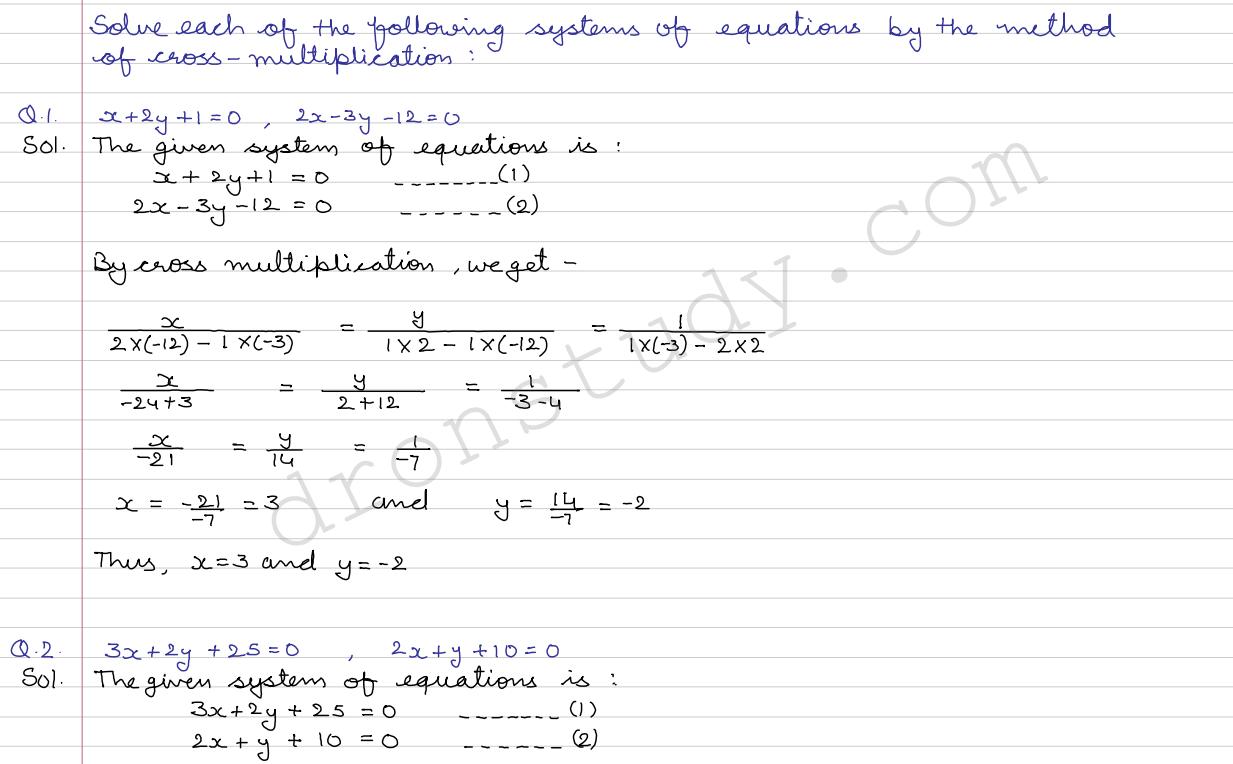 Solve each of the following systems of equations by the method
of cross-multiplication :
Q.1. x+2y+1=0 , 2x-3y-12=0
Sol. The given system of equations is :
x+2y+1 = 0 --------(1)
2x-3y-12 = 0 ------(2)
By cross multiplication, we get -
x/(2×(-12) - 1×(-3)) = y/(1×2 - 1×(-12)) = 1/(1×(-3) - 2×2)
x/(-24+3) = y/(2+12) = 1/(-3-4)
x/-21 = y/14 = 1/-7
x = -21/-7 = 3 and y = 14/-7 = -2
Thus, x=3 and y=-2
Q.2. 3x+2y+25=0 , 2x+y+10=0
Sol. The given system of equations is :
3x+2y+25 = 0 -------(1)
2x+y+10 = 0 ------(2)
dronstudy.com